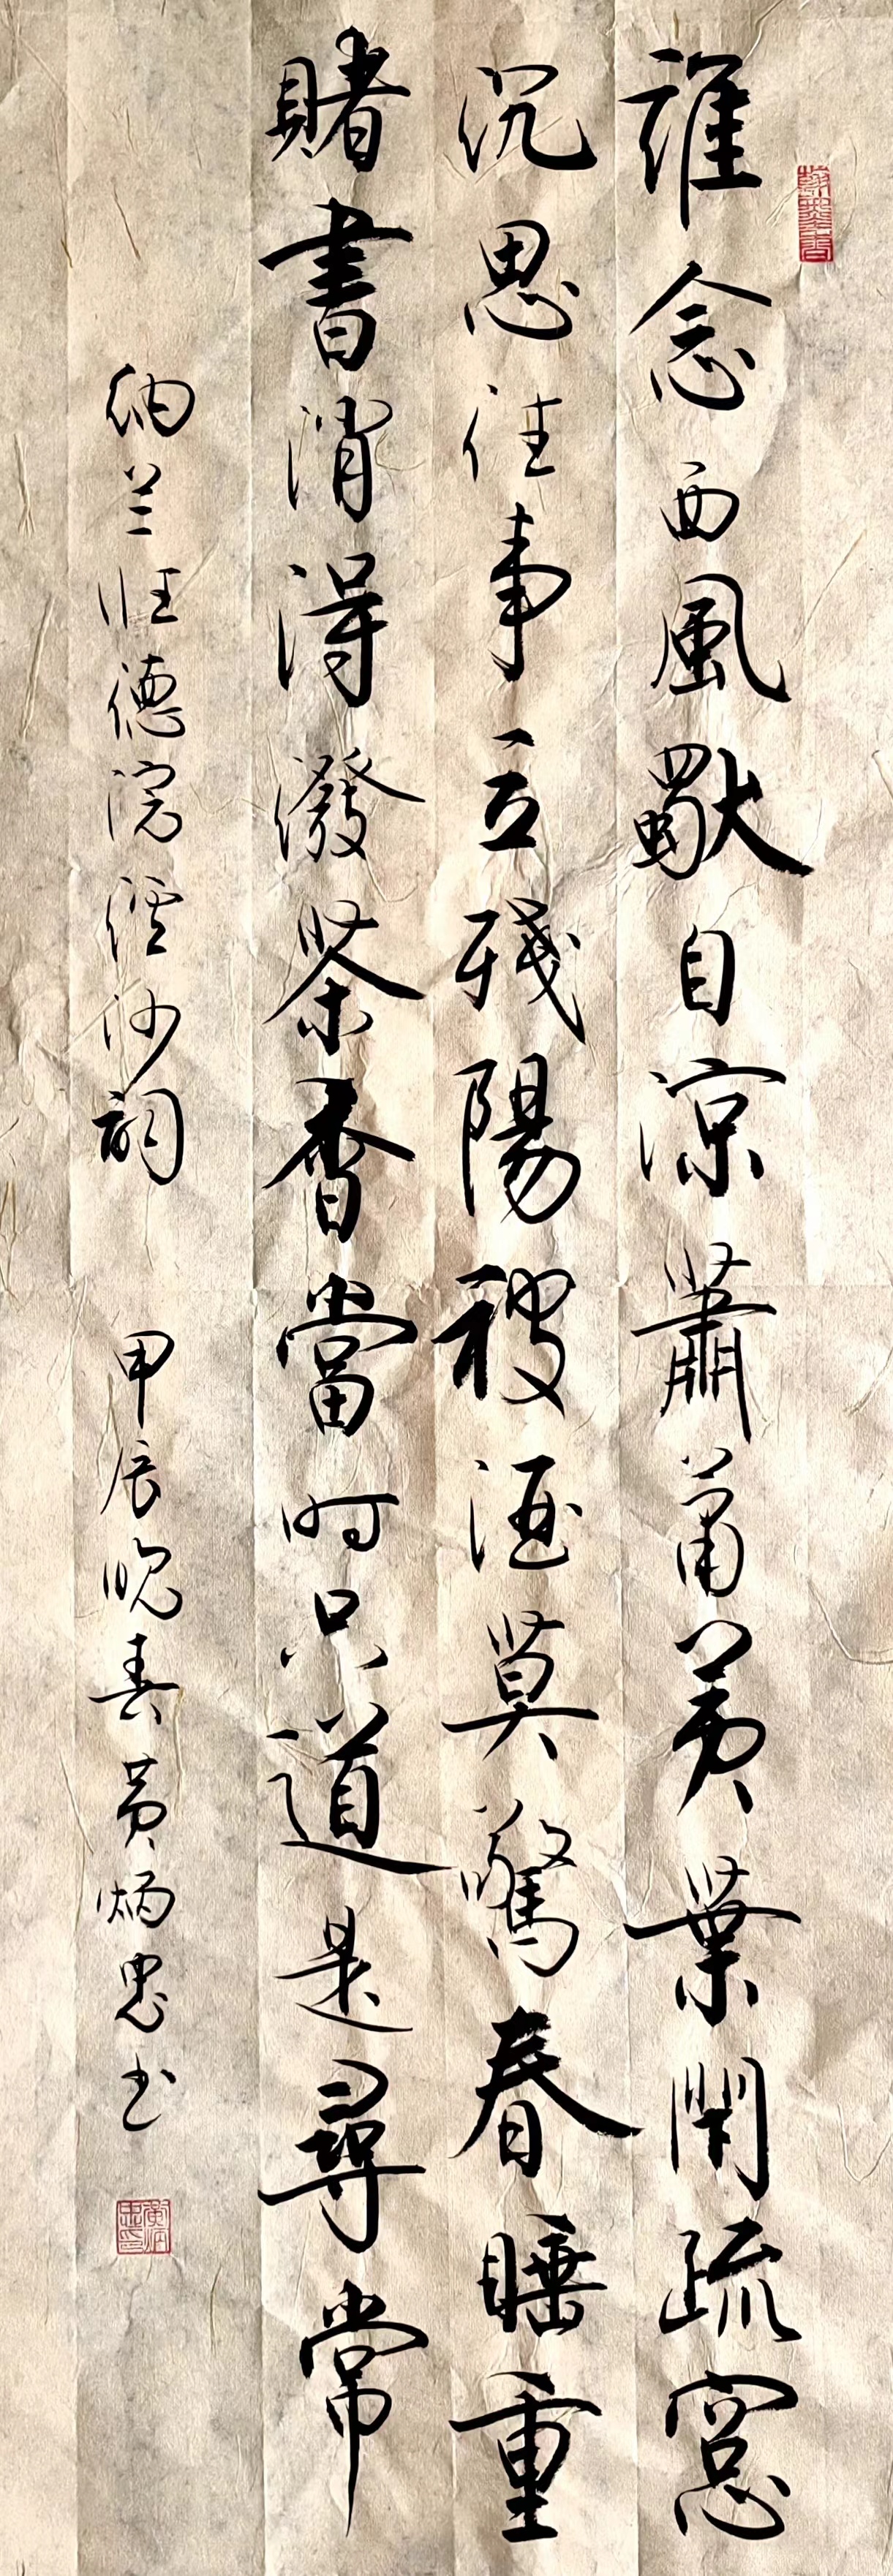 誰念西風獨自涼蕭蕭黃葉閉疏窓
沉思往事立殘陽被酒莫驚春睡重
賭書消得潑茶香當時只道是尋常
纳兰性德浣溪沙詞 甲辰晚春黄炳忠书